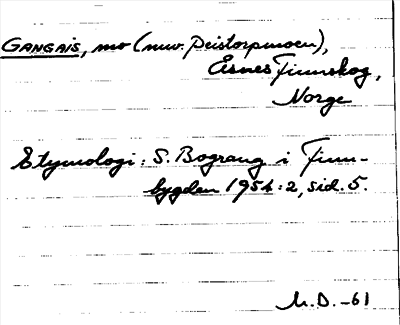 GANGAIS, mo (nuv. Peistorpmoen),
Åsnes Finnskog,
Norge
Etymologi: S. Bograng i Finn-
bygden 1954:2, sid. 5.
M.D. -61